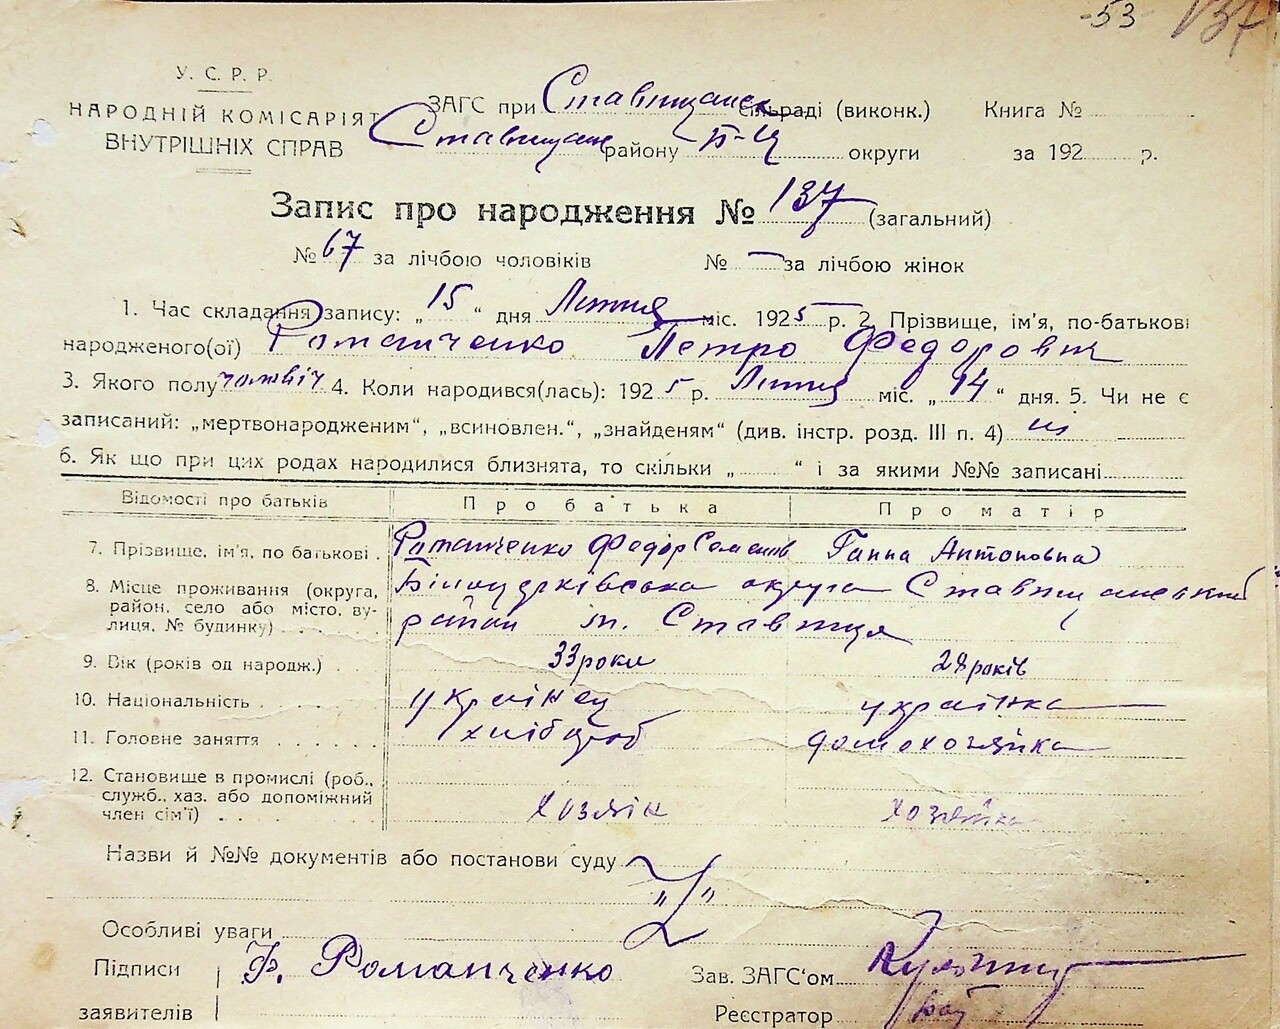 -53 137
У. С. Р. Р.
НАРОДНІЙ КОМІСАРІЯТ
ВНУТРІШНІХ СПРАВ
ЗАГС при Ставищанск сільраді (виконк.) Книга №
Ставищанс району Б-Ц округи за 192 р.
Запис про народження № 137 (загальний)
№ 67 за лічбою чоловіків № — за лічбою жінок
1. Час складання запису: „ 15 “ дня Липня міс. 1925 р. 2. Прізвище, ім’я, по-батькові
народженого(ої) Романченко Петро Федорович
3. Якого полу чоловіч 4. Коли народився(лась): 192 5 р. Липня міс. „ 14 “ дня. 5. Чи не є
записаний: „мертвонародженим“, „всиновлен.“, „знайденям“ (див. інстр. розд. III п. 4) ні
6. Як що при цих родах народилися близнята, то скільки „ “ і за якими №№ записані
Відомості про батьків Про батька Про матір
7. Прізвище, ім’я, по батькові Романченко Федор Семенов Ганна Антоновна
8. Місце проживання (округа, район, село або місто, вулиця, № будинку) Білоцерківська округа Ставищанский
район м. Ставища
9. Вік (років од народж.) 33 роки 28 років
10. Національність українец українка
11. Головне заняття хлібороб домохозяйка
12. Становище в промислі (роб., служб., хаз. або допоміжний член сім’ї) Хозяін Хозяйка
Назви й №№ документів або постанови суду
Особливі уваги
Підписи Ф. Романченко Зав. ЗАГС‘ом
заявителів Реєстратор